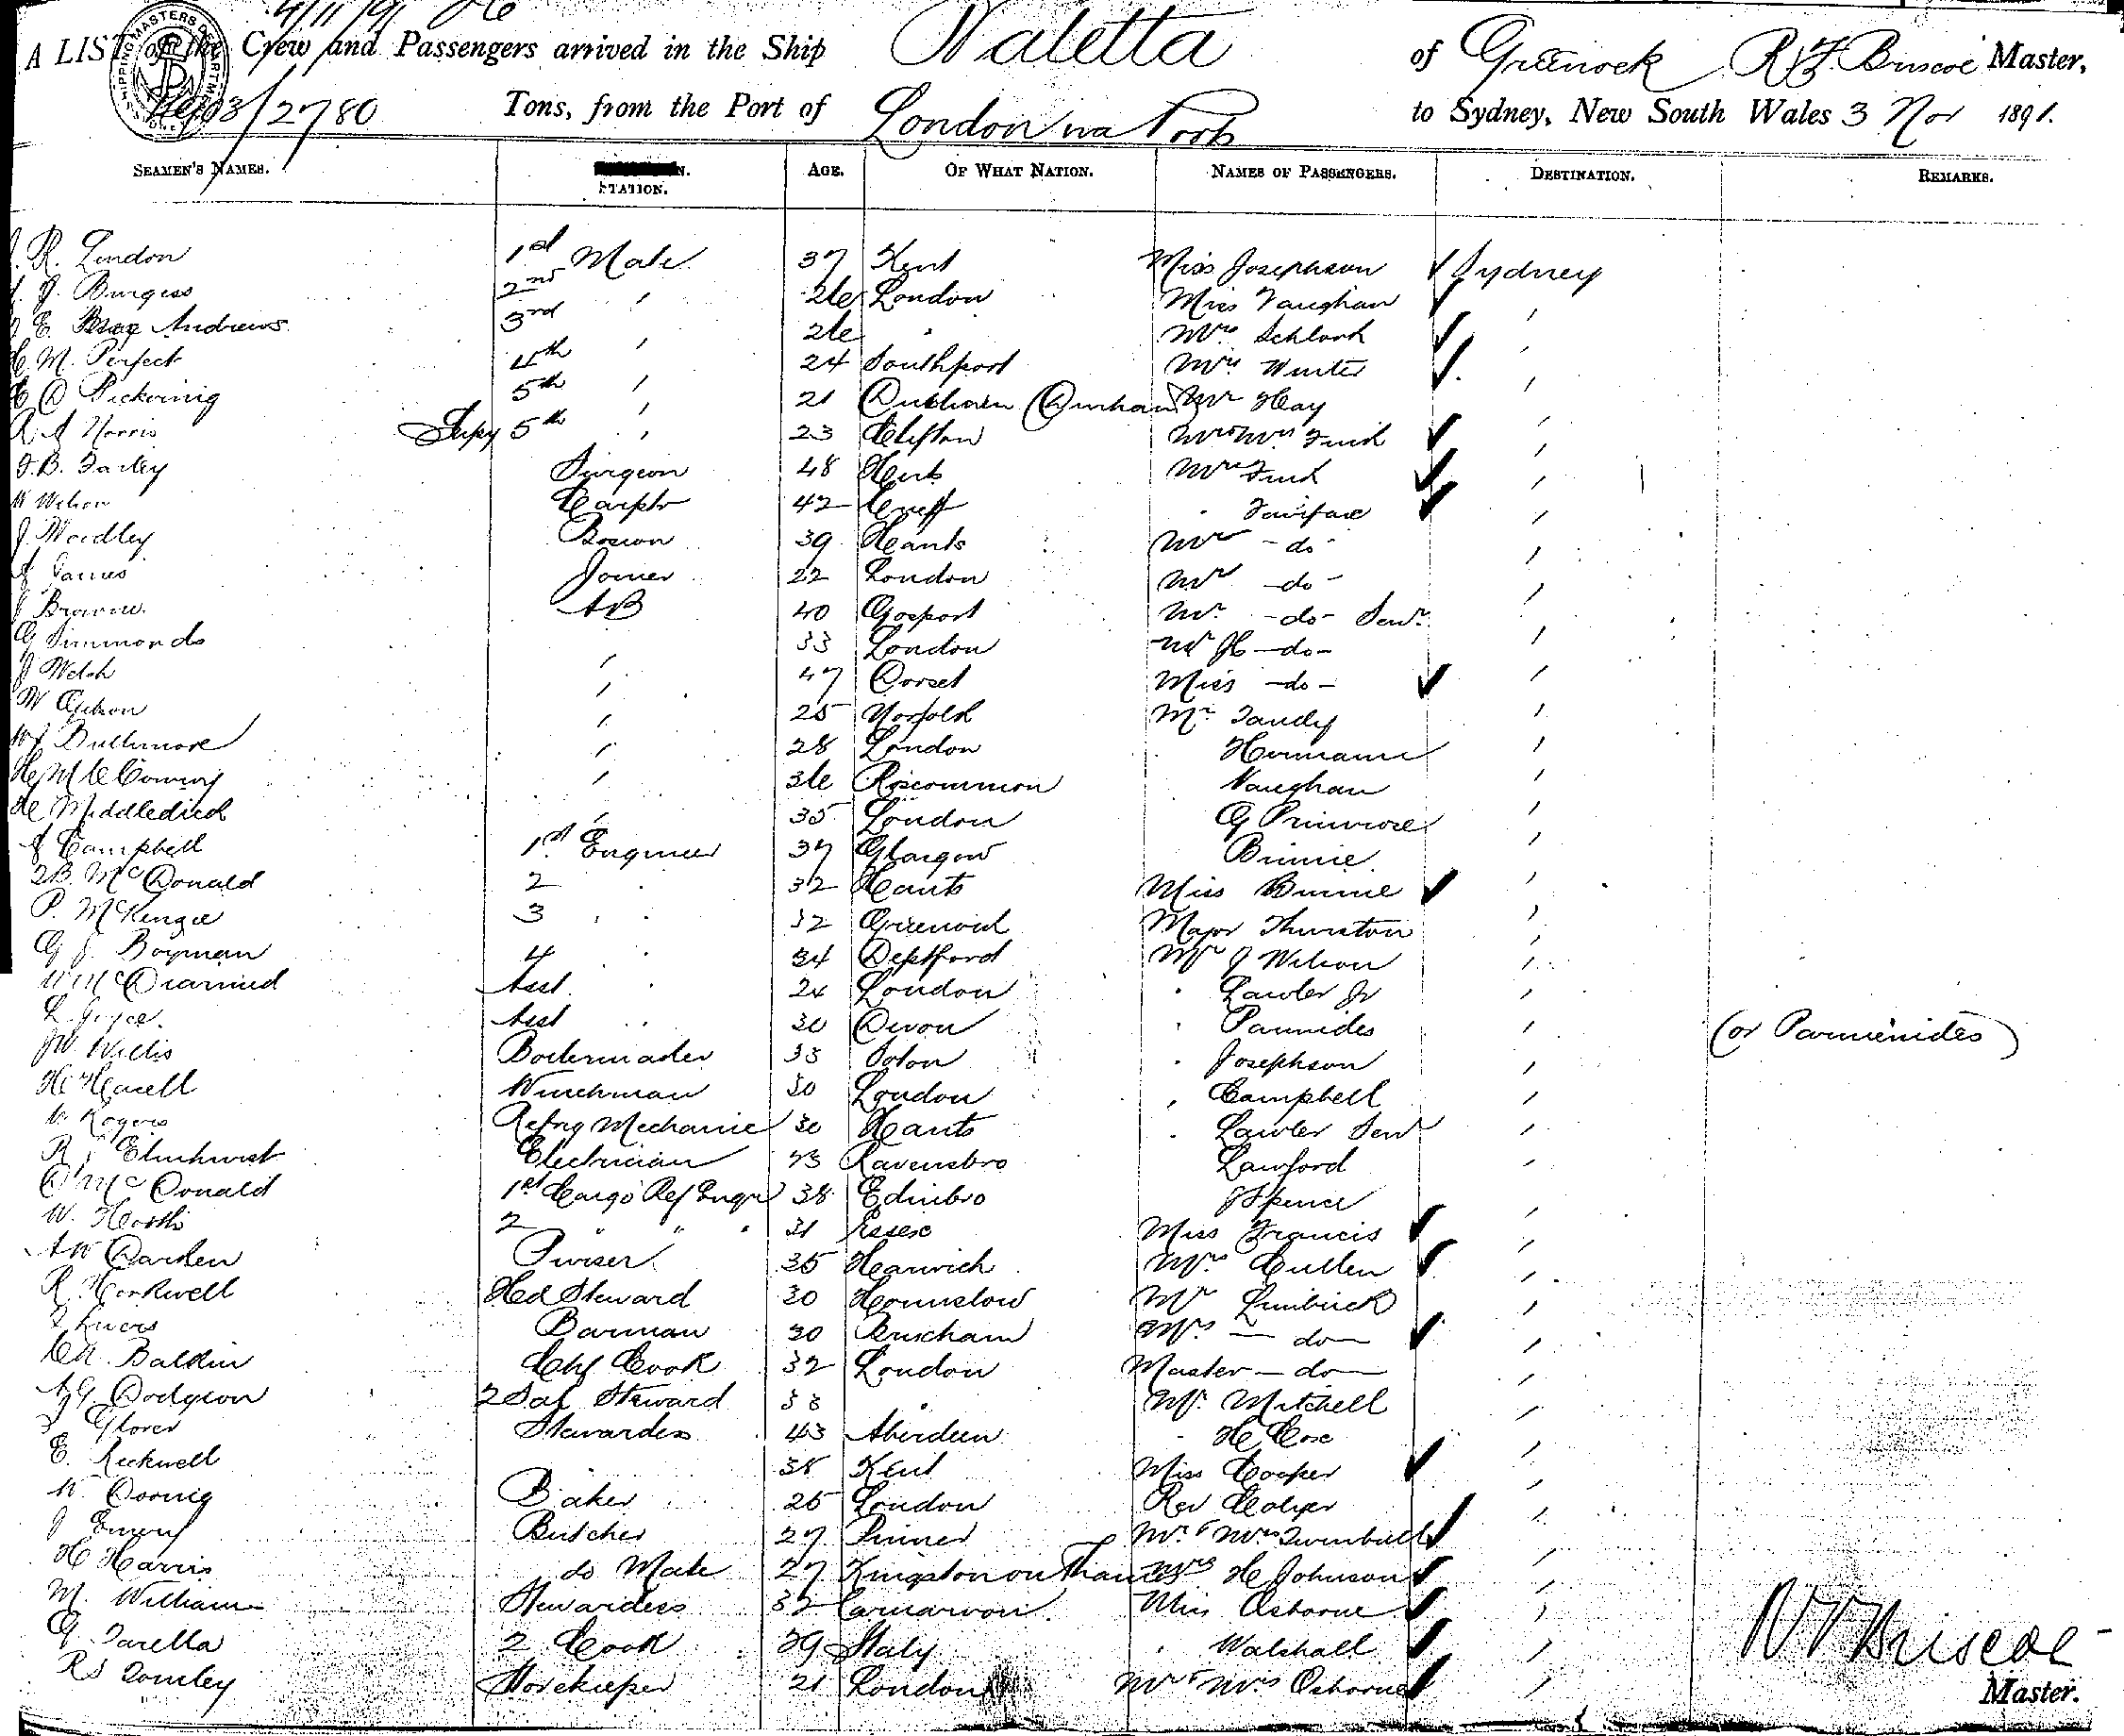 4/11/91
A LIST of the Crew and Passengers arrived in the Ship Valetta of Greenock R F Briscoe Master,
/2780 Tons, from the Port of London via Ports to Sydney, New South Wales 3 Nov 1891.
SEAMEN'S NAMES. STATION. AGE. OF WHAT NATION. NAMES OF PASSENGERS. DESTINATION. REMARKS.
R. London 1st Mate 37 Kent Miss Josephson ✓ Sydney
J. Burgess 2nd " 26 London Miss Vaughan "
E. Andrews 3rd " 26 " Mrs. ✓ "
M. Perfect 4th " 24 Southport Mrs Winter ✓ "
Pickering 5th " 21 Durham Mr Hay
Norris Supy 5th " 23 Clifton Mr & Mrs Finch ✓ "
J.B. Farley Surgeon 48 Herts Mrs Finch ✓ "
W Wilson Carptr 42 Fairfax ✓ "
J. Woodley Bosun 39 Hants Mrs - do - "
James Joiner 22 London Mr - do - "
J Brown AB 40 Gosport Mr. - do - Senr. "
G Simmonds " 33 London Mr H - do - "
J Welch " 47 Dorset Miss - do - ✓ "
W " 25 Norfolk Mr. Tandy "
Bullimore " 28 London Hermann "
" 36 Roscommon Vaughan "
H Middleditch " 35 London G Primrose "
A Campbell 1st Engineer 37 Glasgow Binnie "
McDonald 2 " 32 Hants Miss Binnie ✓ "
P. McKenzie 3 " " 32 Greenwich Major Thurston "
G J. Boyman 4 " 34 Deptford Mr J Wilson "
McDiarmid Asst. " 24 London " Lawler Jr "
L. Joyce. Asst " 30 Devon " Parmides " (or Parmenides)
JW. Willis Boilermaker 33 " Josephson "
H. Winchman 30 London " Campbell "
W. Rogers Refng Mechanic 30 Hants " Lawler Senr "
R Elmhurst Electrician 23 Lawford "
McDonald 1st Cargo Ref Engr 38 Edinbro J Spence "
W. North 2 " " " 31 Essex Miss Francis ✓ "
AW Darken Purser 35 Harwich Mrs. Cullen ✓ "
R. Hd Steward 30 Hounslow Mr Limbrick "
Lucas Barman 30 Mrs. - do - ✓ "
Chf Cook 32 London Master - do - "
Dodgson 2 Sal Steward 33 " Mr. Mitchell "
Glover Stewardess 43 Aberdeen " H "
E. Rockwell 38 Kent Miss Cooper ✓ "
W. Baker 25 London Rev ✓ "
J Emery Butcher 27 Pinner Mr. & Mrs Turnbull ✓ "
H Harris do Mate 27 Kingston on Thames Mrs H Johnson ✓ "
M. Williams Stewardess 32 Carnarvon Miss Osborne ✓ "
G. Tarella 2 Cook 29 Italy " Walshall ✓ "
Storekeeper 21 London Mr & Mrs Osborne ✓ "
Briscoe
Master.